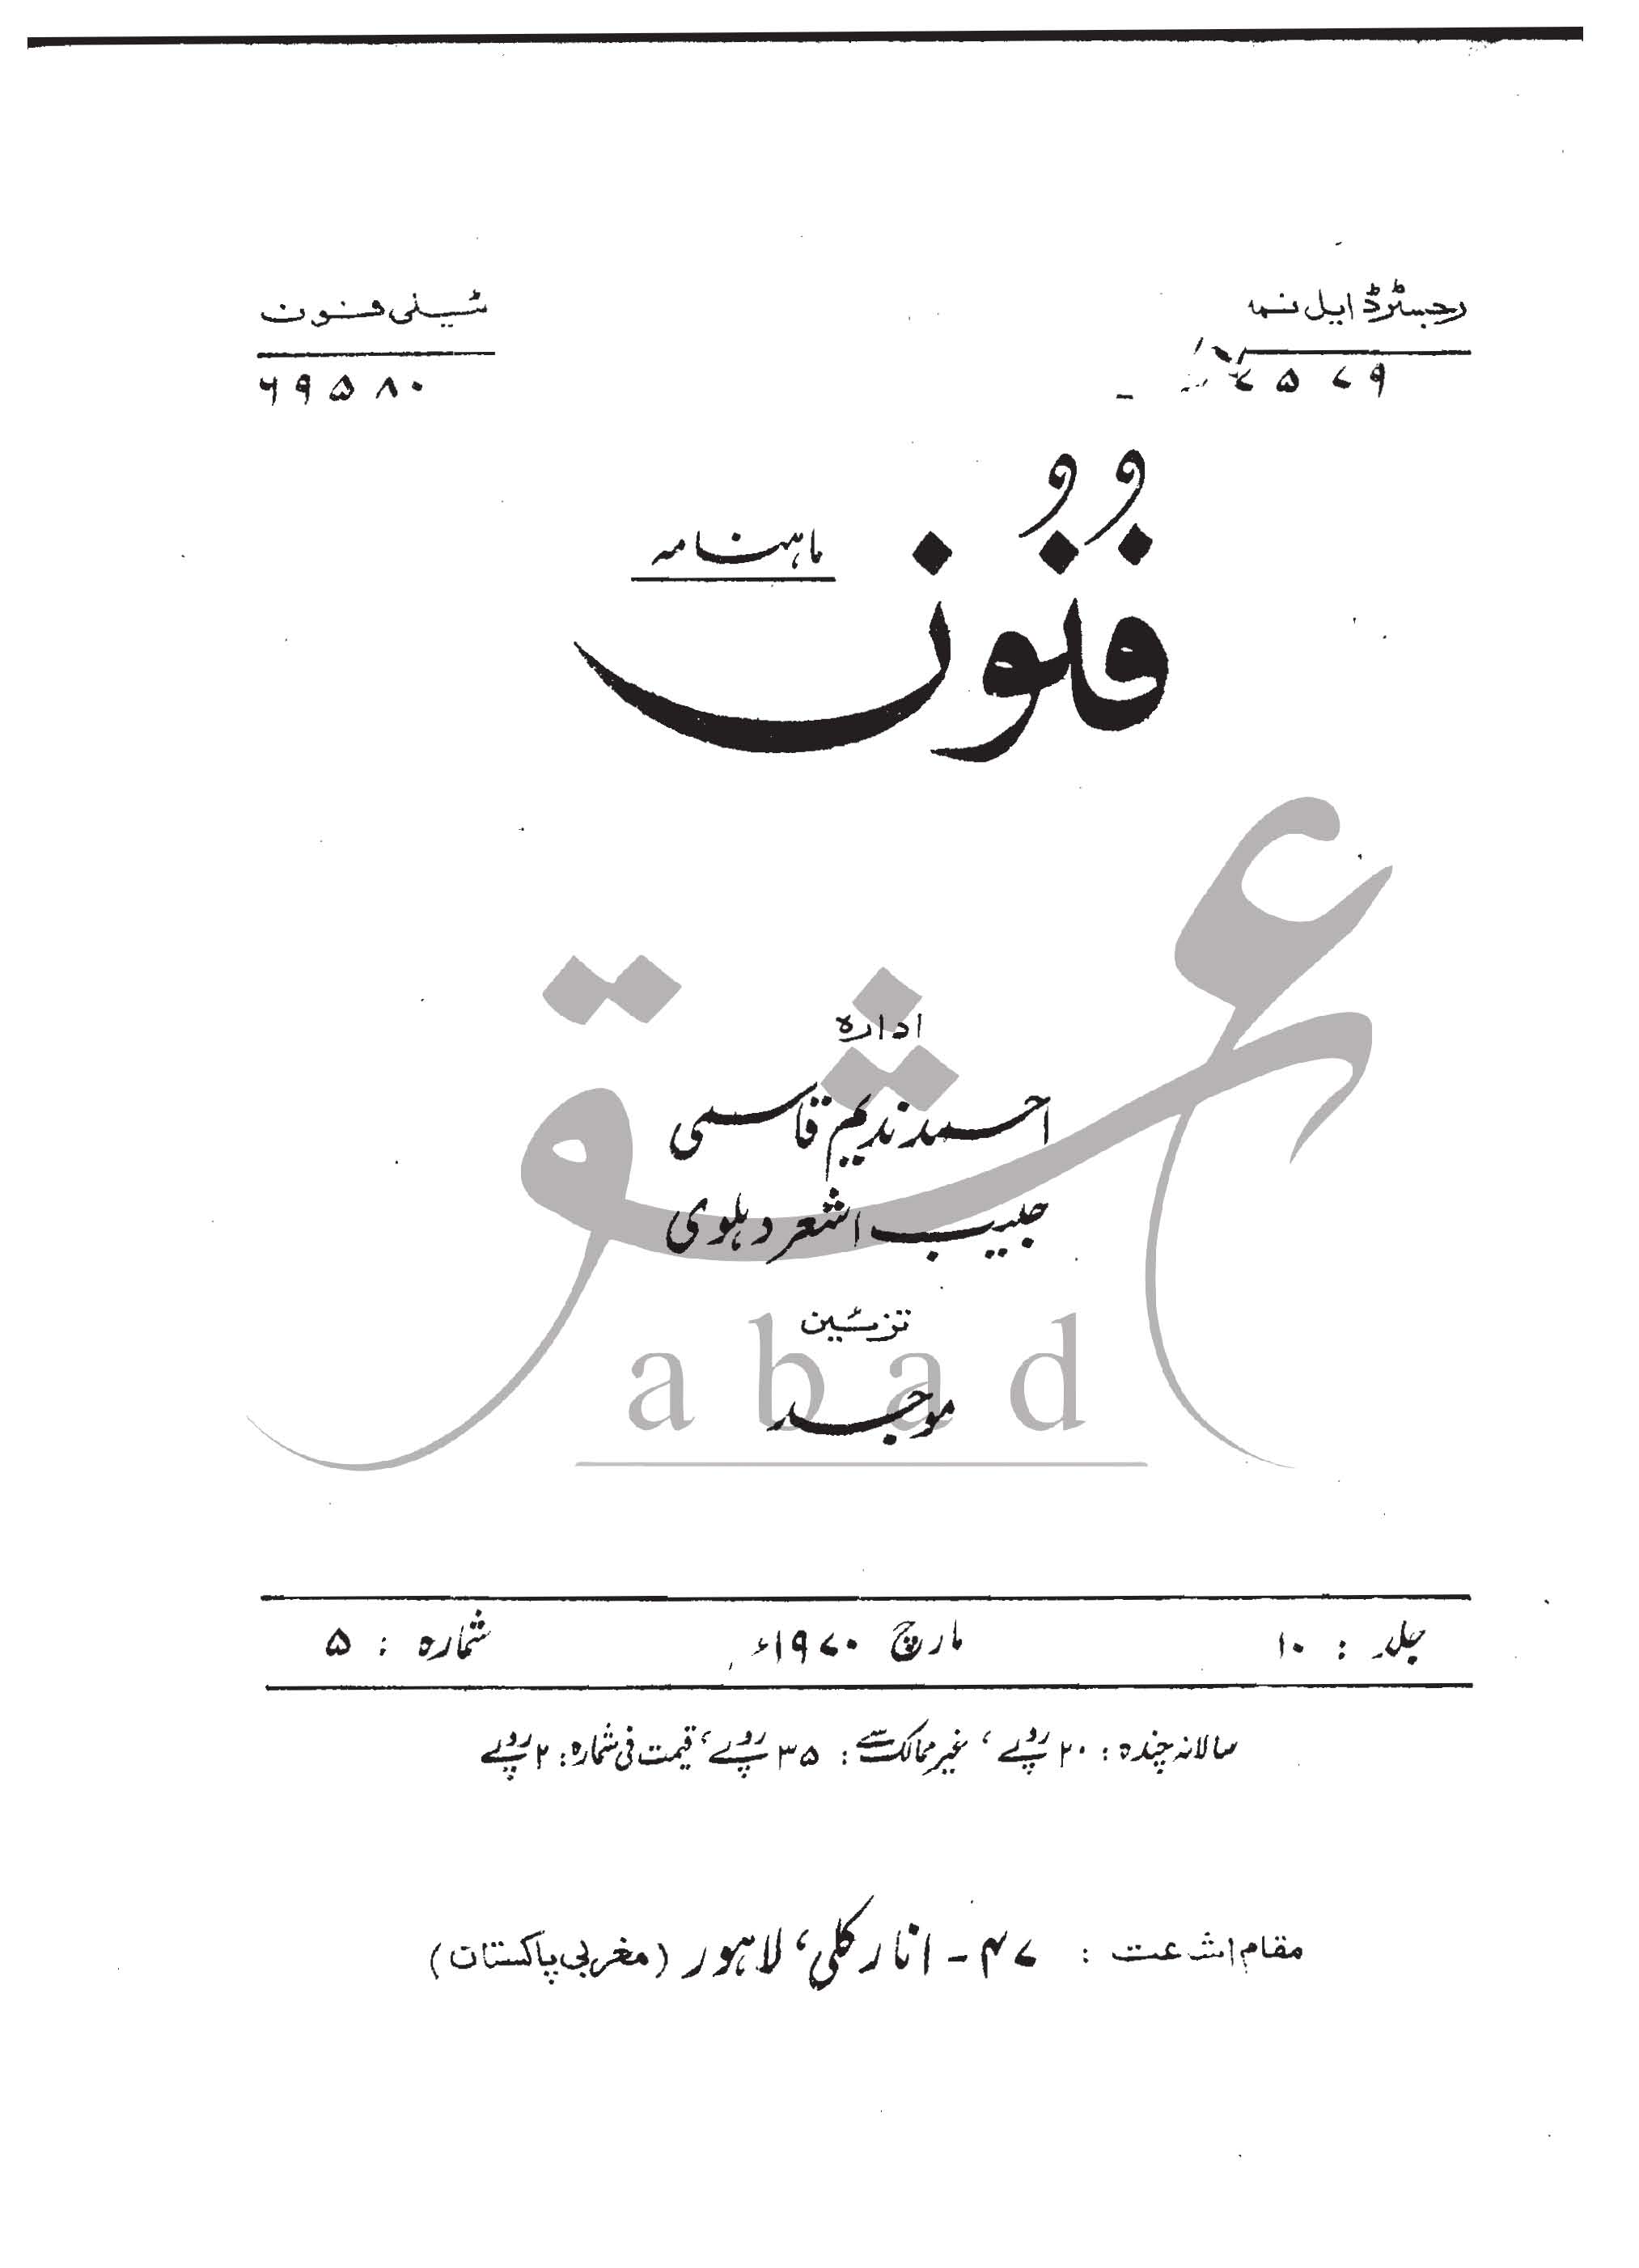 رجسٹرڈ ایل نمبر
۷۵۷۹
ٹیلی فون
۶۹۵۸۰
ماہنامہ
فنُوُن
عشق
abad
ادارہ
احمد ندیم قاسمی
حبیب اشعر دہلوی
تزئین
موجد
جلد : ۱۰ مارچ ۱۹۷۰ء شمارہ : ۵
سالانہ چندہ : ۲۰ روپے، غیر ممالک سے : ۳۵ روپے، قیمت فی شمارہ : ۲ روپے
مقام اشاعت : ۴۷ - انار کلی، لاہور (مغربی پاکستان)